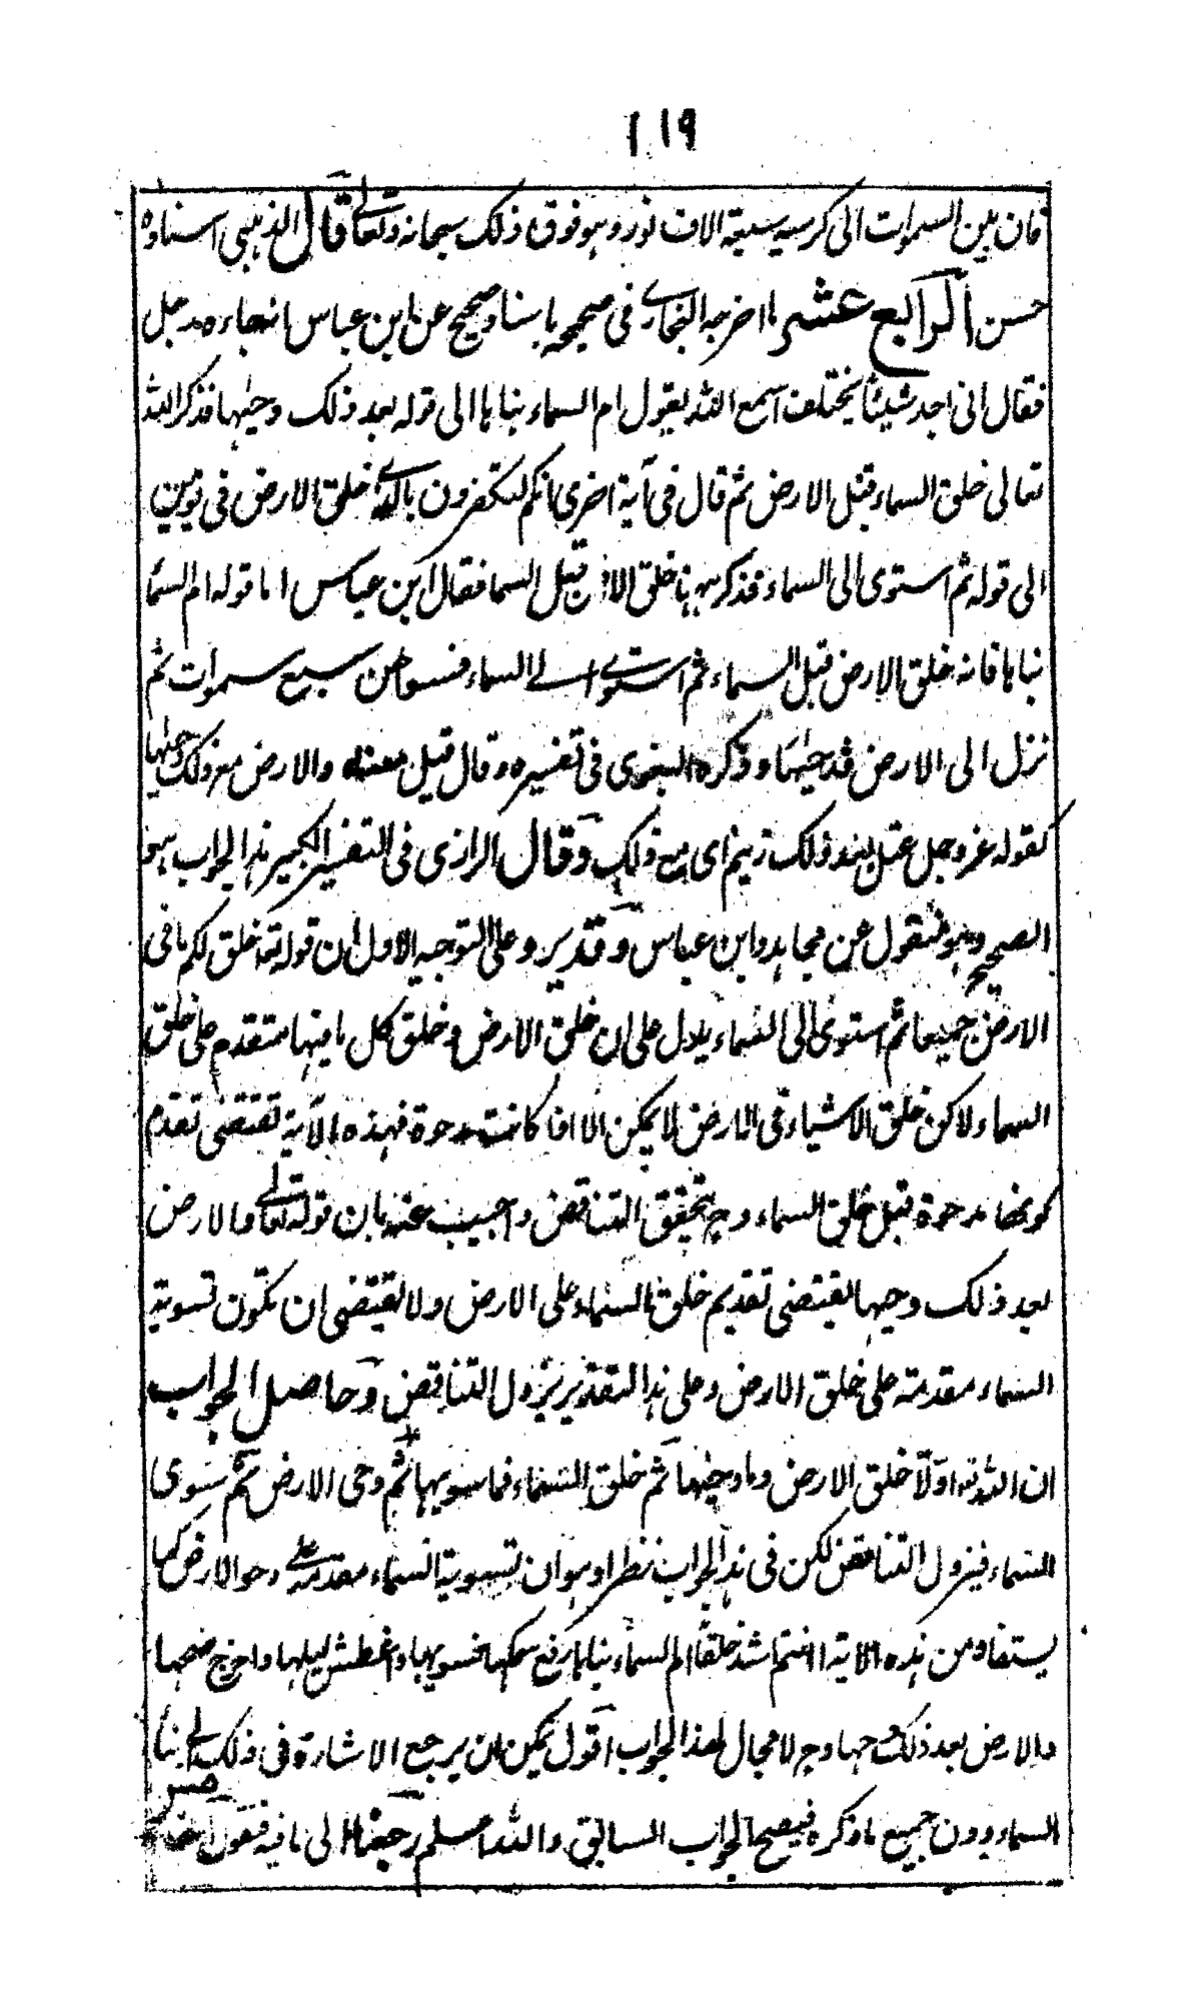 ١١٩
فان بين السموات الى كرسيه سبعة الاف نور وهو فوق ذلك سبحانه وتعالى قال الذهبي اسناده
حسن الرابع عشر ما اخرجه البخاري في صحيحه باسناد صحيح عن ابن عباس انه جاءه رجل
فقال اني اجد شيئا يختلف اسمع الله يقول ام السماء بناها الى قوله بعد ذلك دحيٰها فذكر الله
تعالى خلق السماء قبل الارض ثم قال في آية اخرى انكم لتكفرون بالذي خلق الارض في يومين
الى قوله ثم استوى الى السماء فذكر ههنا خلق الارض قبل السما فقال ابن عباس اما قوله ام السماء
بناها فانه خلق الارض قبل السماء ثم استوى الى السماء فسواهن سبع سموات ثم
نزل الى الارض فدحيٰها وذكره البغوى في تفسيره وقال قيل معناه والارض مع ذلك دحيٰها
كقوله عز وجل عتل بعد ذلك زنيم اى مع ذلك وقال الرازى فى التفسير الكبير هذا الجواب هو
الصحيح وهو منقول عن مجاهد وابن عباس وقدير وعلى التوجيه الاول ان قوله تعہ خلق لكم ما فى
الارض جميعا ثم استوى الى السماء يدل على ان خلق الارض وخلق كل ما فيها متقدم على خلق
السماء لاكن خلق الاشياء فى الارض لا يمكن الا اذا كانت مدحوة فهذه الآية تقتضى تقدم
كونها مدحوة قبل خلق السماء وح يتحقق التناقض واجيب عنه بان قوله تعالى والارض
بعد ذلك دحيها يقتضى تقديم خلق السماء على الارض ولا يقتضى ان تكون تسوية
السماء مقدمة على خلق الارض وعلى هذا التقدير يزول التناقض وحاصل الجواب
ان الله تعہ اولا خلق الارض وما دحيٰها ثم خلق السماء فما سويها ثم دحى الارض ثم سوى
السماء فيزول التناقض لكن فى هذا الجواب نظر او هو ان تسوية السماء مقدمة على دحو الارض كما
يستفاد من هذه الاية اانتم اشد خلقا ام السماء بناها رفع سمكها فسويها واغطش ليلها واخرج ضحها
والارض بعد ذلك دحها وح لا مجال لهذا الجواب اقول يمكن ان يرجع الاشارة فى ذلك الى بناء
السماء دون جميع ما ذكره فيصح الجواب السابق والله اعلم رجعنا الى ما فيه فنقول